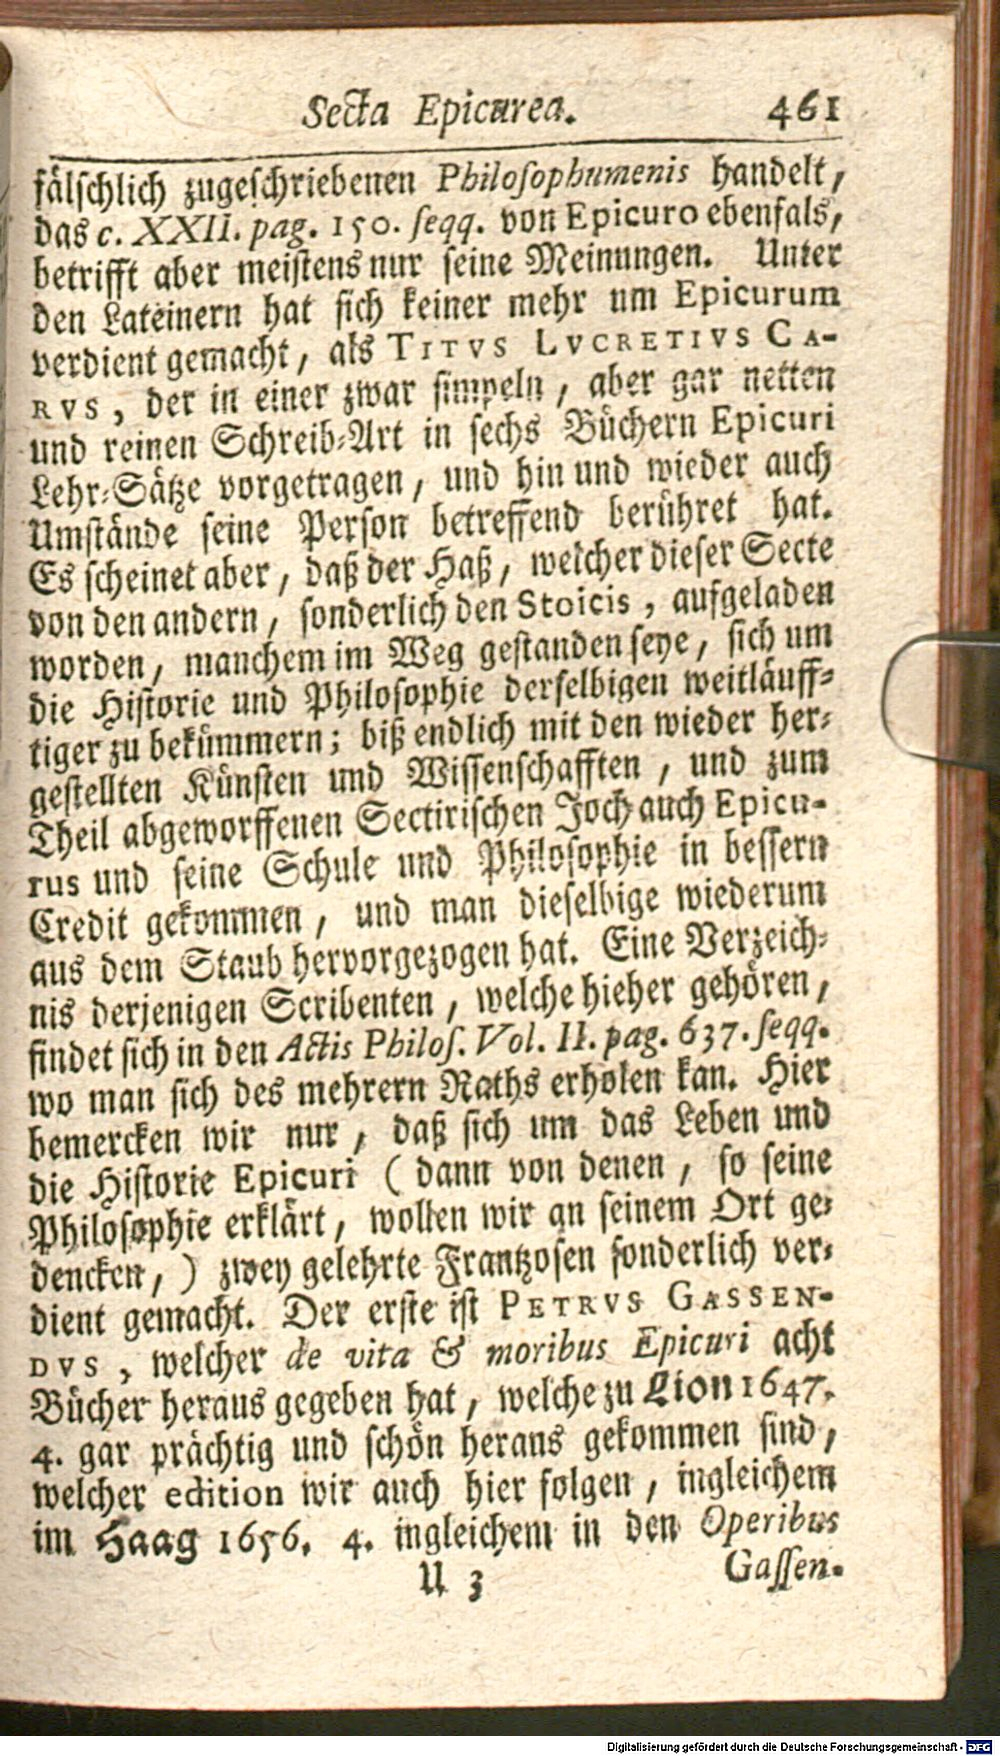 Secta Epicurea. 461
fälschlich zugeschriebenen Philosophumenis handelt,
das c. XXII. pag. 150. seqq. von Epicuro ebenfals,
betrifft aber meistens nur seine Meinungen. Unter
den Lateinern hat sich keiner mehr um Epicurum
verdient gemacht, als TITVS LVCRETIVS CA-
RVS, der in einer zwar simpeln, aber gar netten
und reinen Schreib-Art in sechs Büchern Epicuri
Lehr-Sätze vorgetragen, und hin und wieder auch
Umstände seine Person betreffend berühret hat.
Es scheinet aber, daß der Haß, welcher dieser Secte
von den andern, sonderlich den Stoicis, aufgeladen
worden, manchem im Weg gestanden seye, sich um
die Historie und Philosophie derselbigen weitläuff-
tiger zu bekümmern; biß endlich mit den wieder her-
gestellten Künsten und Wissenschafften, und zum
Theil abgeworffenen Sectirischen Joch auch Epicu-
rus und seine Schule und Philosophie in bessern
Credit gekommen, und man dieselbige wiederum
aus dem Staub hervorgezogen hat. Eine Verzeich-
nis derjenigen Scribenten, welche hieher gehören,
findet sich in den Actis Philos. Vol. II. pag. 637. seqq.
wo man sich des mehrern Raths erholen kan. Hier
bemercken wir nur, daß sich um das Leben und
die Historie Epicuri (dann von denen, so seine
Philosophie erklärt, wollen wir an seinem Ort ge-
dencken,) zwey gelehrte Frantzosen sonderlich ver-
dient gemacht. Der erste ist PETRVS GASSEN-
DVS, welcher de vita & moribus Epicuri acht
Bücher heraus gegeben hat, welche zu Lion 1647.
4. gar prächtig und schön heraus gekommen sind,
welcher edition wir auch hier folgen, ingleichem
im Haag 1656. 4. ingleichem in den Operibus
U 3 Gassen-
Digitalisierung gefördert durch die Deutsche Forschungsgemeinschaft - DFG